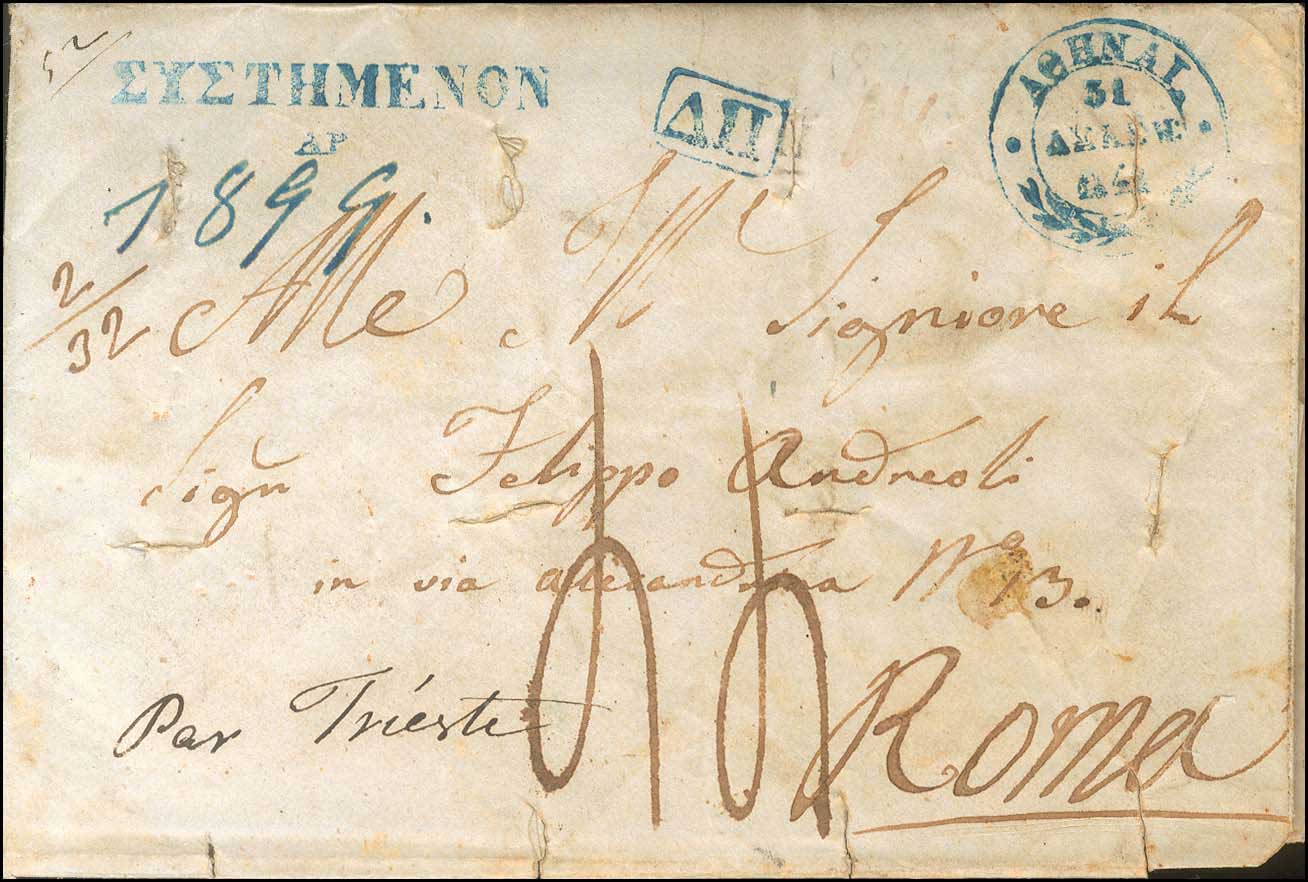 ΣΥΣΤΗΜΕΝΟΝ
ΑΡ
1899.
ΔΠ
ΑΘΗΝΑΙ.
31
2/32
Alle Signiore il
Sigr Felippo Andreoli
in via Alexandrina No 13.
Par Trieste
Roma